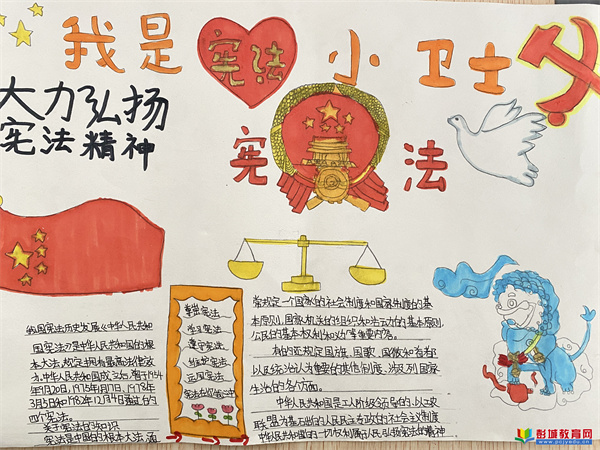 我是宪法小卫士
大力弘扬
宪法精神
宪法
我国宪法历史发展《中华人民共和
国宪法》是中华人民共和国的根
本大法,规定拥有最高法律效
力.中华人民共和国成立后,曾于1954
年9月20日,1975年1月17日,1978年
3月5日和1982年12月4日通过的
四个宪法。
关于宪法的知识
宪法是中国的根本大法,涵
尊崇宪法
学习宪法
遵守宪法
维护宪法
运用宪法
常规定一个国家的社会制度和国家制度的基
本原则,国家机关的组织和活动的基本原则,
公民的基本权利和义务等重要内容。
有的还规定国旗、国歌、国徽和首都
以及统治认为重要的其他制度,涉及到国家
生活的各个方面。
中华人民共和国是工人阶级领导的,以工农
联盟为基础的人民民主专政的社会主义制度
中华人民共和国的一切权利属于人民弘扬宪法的精神
彭城教育网
www.pcjyedu.cn